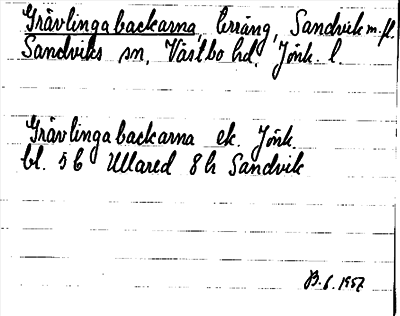 Grävlingabackarna, terräng, Sandvik m. fl.
Sandviks sn, Västbo hd, Jönk. l.
Grävlingabackarna ek. Jönk.
bl. 5b Ullared 8h Sandvik
B. 6. 1957